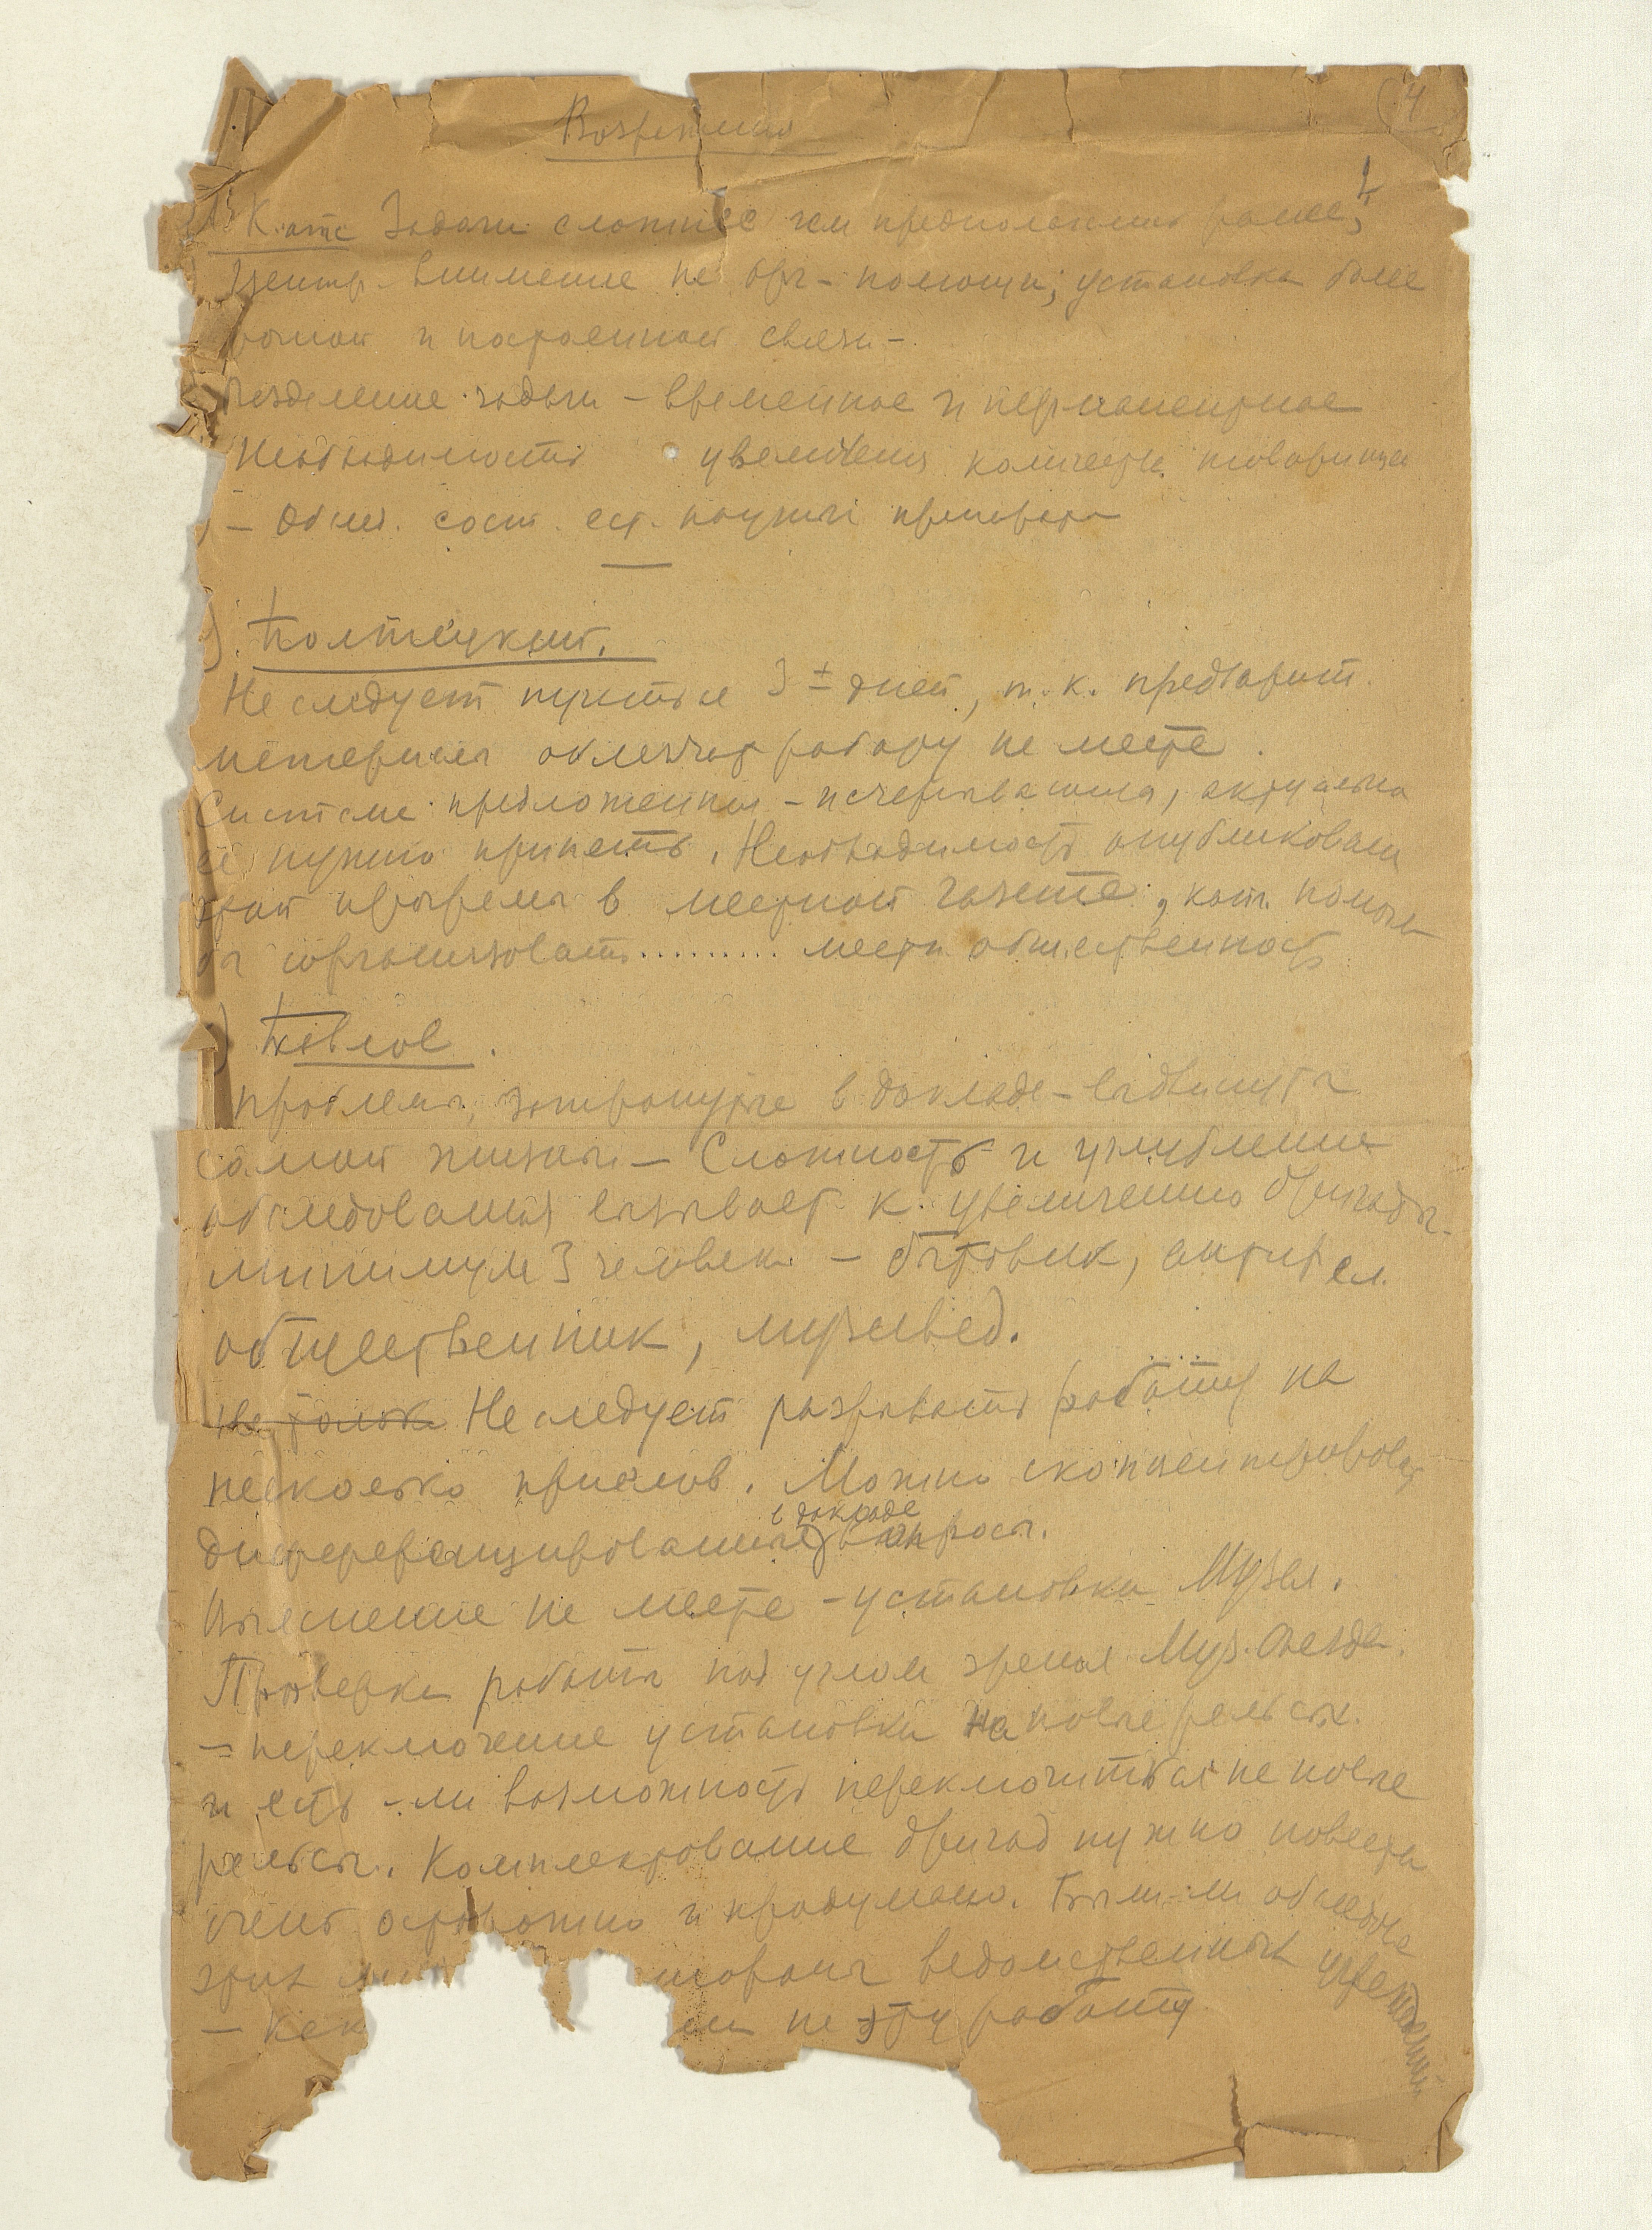 (4
Возражения
1) К.отс Задачи сложнее чем предполагалось ранее,
Центр. внимание на орг- помощи; установка более
и построенной связи-
Разделение задачи - временное и перманентное
Необходимость увеличения количеств. товарищей
- Обслед. сост. ест. научн.
) Полтецкит.
Не следует пункты 3 ± дней, т.к. предварит.
материал облегчает работу на месте.
Система предложенная - исчерпывающа, актуальна
её нужно принять. Необходимость опубликовать
этой программы в местной газете, кот. помогла
бы сорганизовать ......... местн. общественность
) Павлов.
Проблемы, затронутые в докладе - выдвинуты
самой жизнью - Сложность и углубление
обследования вызывает к увеличению бригады-
минимум 3 человека - бытовик, антирел.
общественник, музеевед.
Не только Не следует разрывать работу на
несколько приемов. Можно сконцентрировать
в докладе
диференцированные вопросы.
Выяснение на месте - установки Музея.
Проверка работы под углом зрения Муз. съезда.
- переключение установки на новые рельсы.
и есть-ли возможность переключиться на новые
рельсы. Комплектование бригад нужно повести
очень осторожно и продумано. Были-ли обследов.
этих ведомственных учреждений
- Как на эту работу